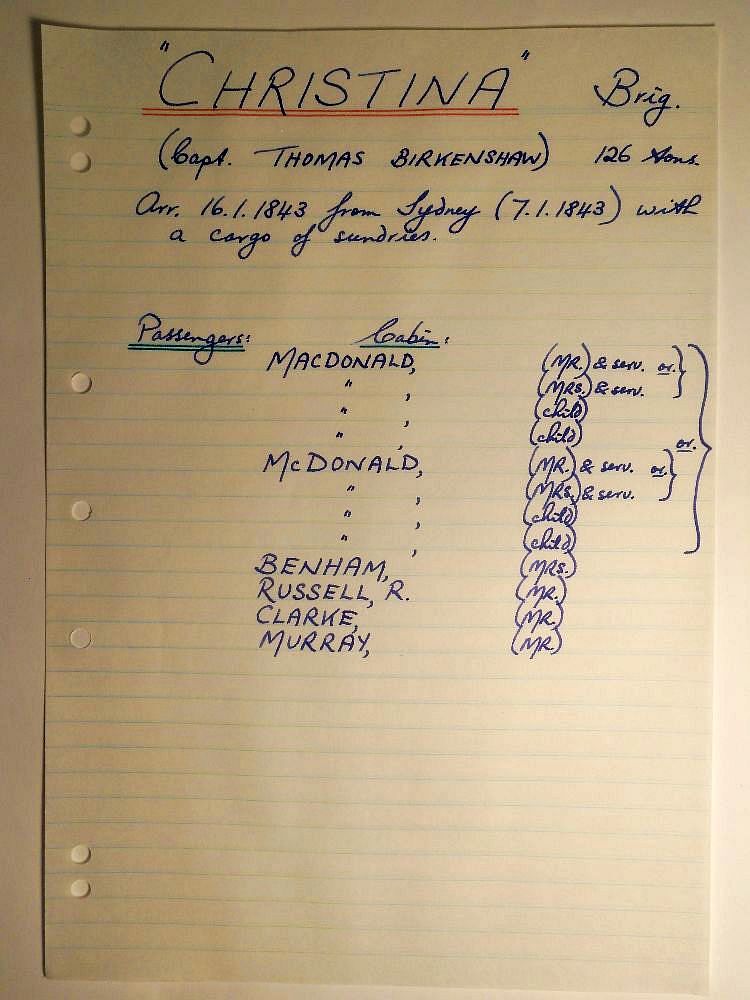 "CHRISTINA" Brig.
(Capt. THOMAS BIRKENSHAW) 126 tons.
Arr. 16.1.1843 from Sydney (7.1.1843) with
a cargo of sundries.
Passengers: Cabin:
MACDONALD, (MR.) & serv. or.
" , (MRS.) & serv.
" , (child)
" , (child)
or.
McDONALD, (MR.) & serv. or.
" , (MRS.) & serv.
" , (child)
" , (child)
BENHAM, (MRS.)
RUSSELL, R. (MR.)
CLARKE, (MR.)
MURRAY, (MR.)